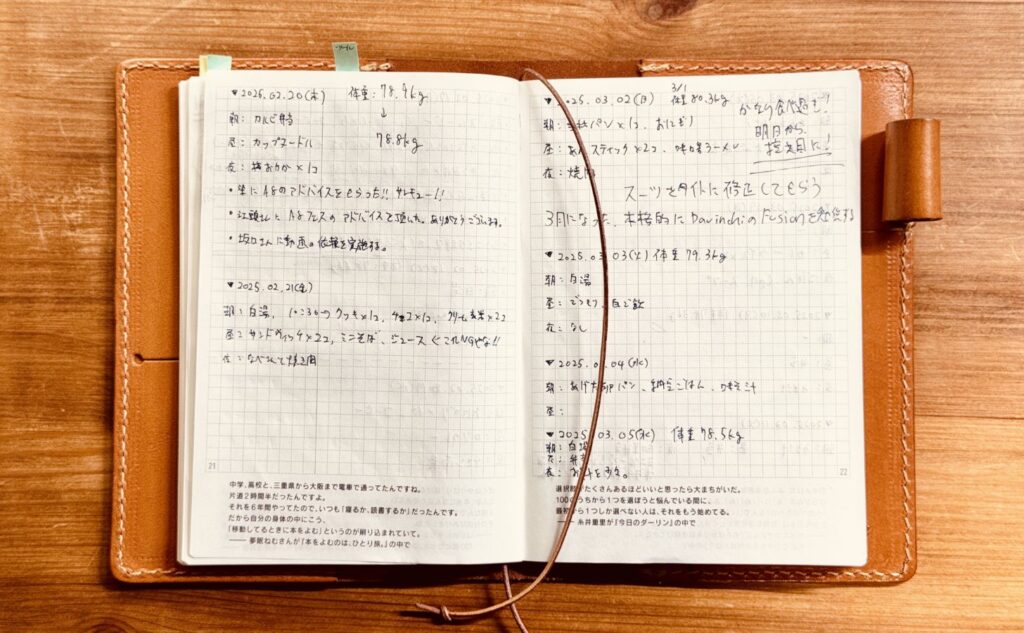 ▼2025.02.20(木) 体重:78.4kg
↓
78.8kg
朝:カルビ弁当
昼:カップヌードル
夜:塩おむすび×1コ
・笙にA8のアドバイスをもらった!! サンキュー!!
・江頭さんとA8フェスのアドバイスを頂いた。ありがとうございます。
・坂口さんに動画の依頼を実施する。
▼2025.02.21(金)
朝:白湯、 クッキー×1コ、 ×1コ、 クリーム玄米×2コ
昼:サンドウィッチ×2コ、ミニそば、ジュース ←これNGやな!!
夜:なべ
21
中学、高校と、三重県から大阪まで電車で通ってたんですね。
片道2時間半だったんですよ。
それを6年間やってたので、いつも「寝るか、読書するか」だったんです。
だから自分の身体の中にこう、
「移動してるときに本をよむ」というのが刷り込まれていて。
—— 夢眠ねむさんが『本をよむのは、ひとり旅。』の中で
3/1
▼2025.03.02(日) 体重80.3kg
かなり食べ過ぎ!
明日から
控え目に!
朝: パン×1コ、おにぎり
昼: スティック×2コ、味噌ラーメン
夜:焼肉
スーツをタイトに修正してもらう
3月になった、本格的にDavinchiのFusionを勉強する
▼2025.03.03(火) 体重79.3kg
朝:白湯
昼: 白ご飯
夜:なし
▼2025.03.04(水)
朝:あげたパン、納豆ごはん、味噌汁
昼:
▼2025.03.05(水) 体重78.5kg
朝:白湯
昼:
夜:
22
選択肢がたくさんあるほどいいと思ったら大まちがいだ。
100のうちから1つを選ぼうと悩んでいる間に、
最初から1つしか選べない人は、それをもう始めてる。
—— 糸井重里が「今日のダーリン」の中で